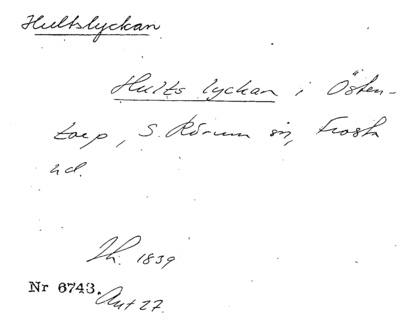 Hultslyckan
Hults lyckan i Östen-
torp, S. Rörum sn, Frosta
hd.
Th. 1839
Nr 6743.
Ant 27.